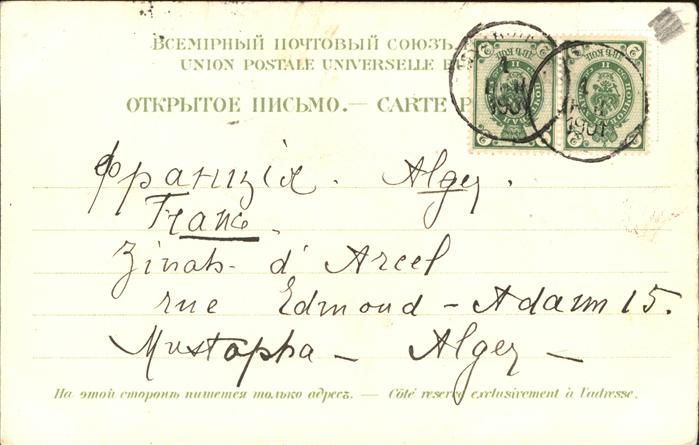 ВСЕМІРНЫЙ ПОЧТОВЫЙ СОЮЗЪ
UNION POSTALE UNIVERSELLE
ОТКРЫТОЕ ПИСЬМО. — CARTE
1901
1901
Франція. Alger.
Franc.
d'Arcel
rue Edmond - Adam 15.
Mustapha - Alger -
На этой сторонѣ пишется только адресъ. — Côté reservé exclusivement à l'adresse.